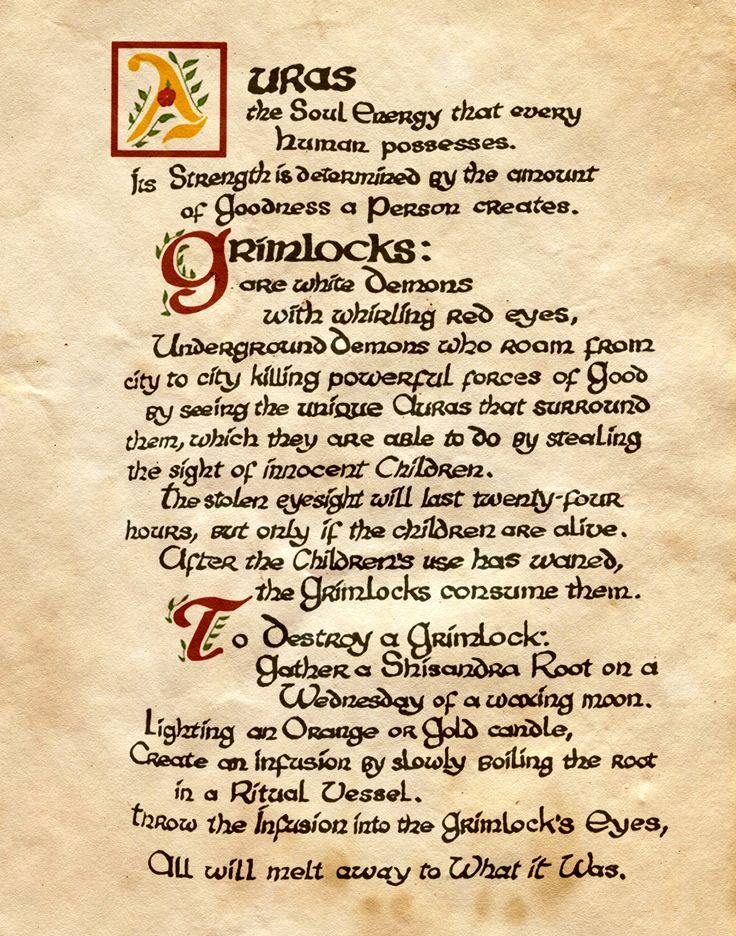 Auras
the Soul Energy that every
human possesses.
Its Strength is determined by the amount
of Goodness a Person creates.
Grimlocks:
are white Demons
with whirling red eyes,
Underground Demons who roam from
city to city killing powerful forces of Good
by seeing the unique Auras that surround
them, which they are able to do by stealing
the sight of innocent Children.
The stolen eyesight will last twenty-four
hours, but only if the children are alive.
After the Children's use has waned,
the Grimlocks consume them.
To Destroy a Grimlock:
Gather a Shisandra Root on a
Wednesday of a waxing moon.
Lighting an Orange or Gold candle,
Create an Infusion by slowly boiling the root
in a Ritual Vessel.
Throw the Infusion into the Grimlock's Eyes,
All will melt away to What it Was.